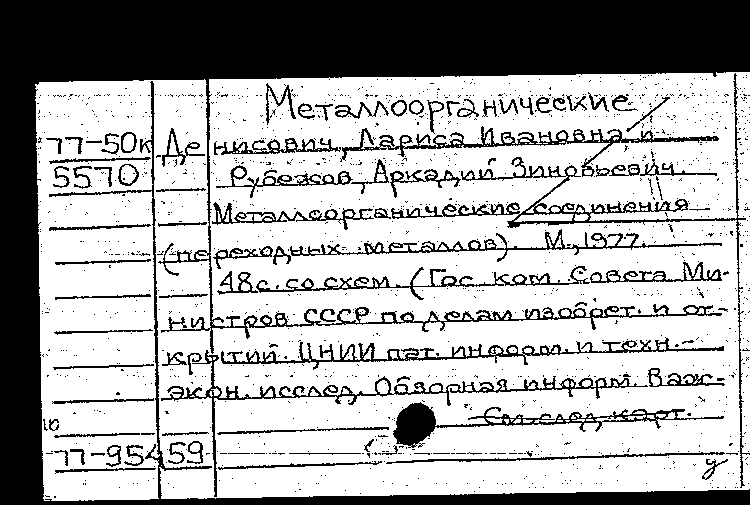 Металлоорганические
77-50к Де нисович, Лариса Ивановна и
5570 Рубежов, Аркадий Зиновьевич.
Металлоорганические соединения
(переходных металлов). М., 1977.
48с. со схем. (Гос. ком. Совета Ми-
нистров СССР по делам изобрет. и от-
крытий. ЦНИИ пат. информ. и техн.-
экон. исслед. Обзорная информ. Важ-
См. след. карт.
77-95459
у